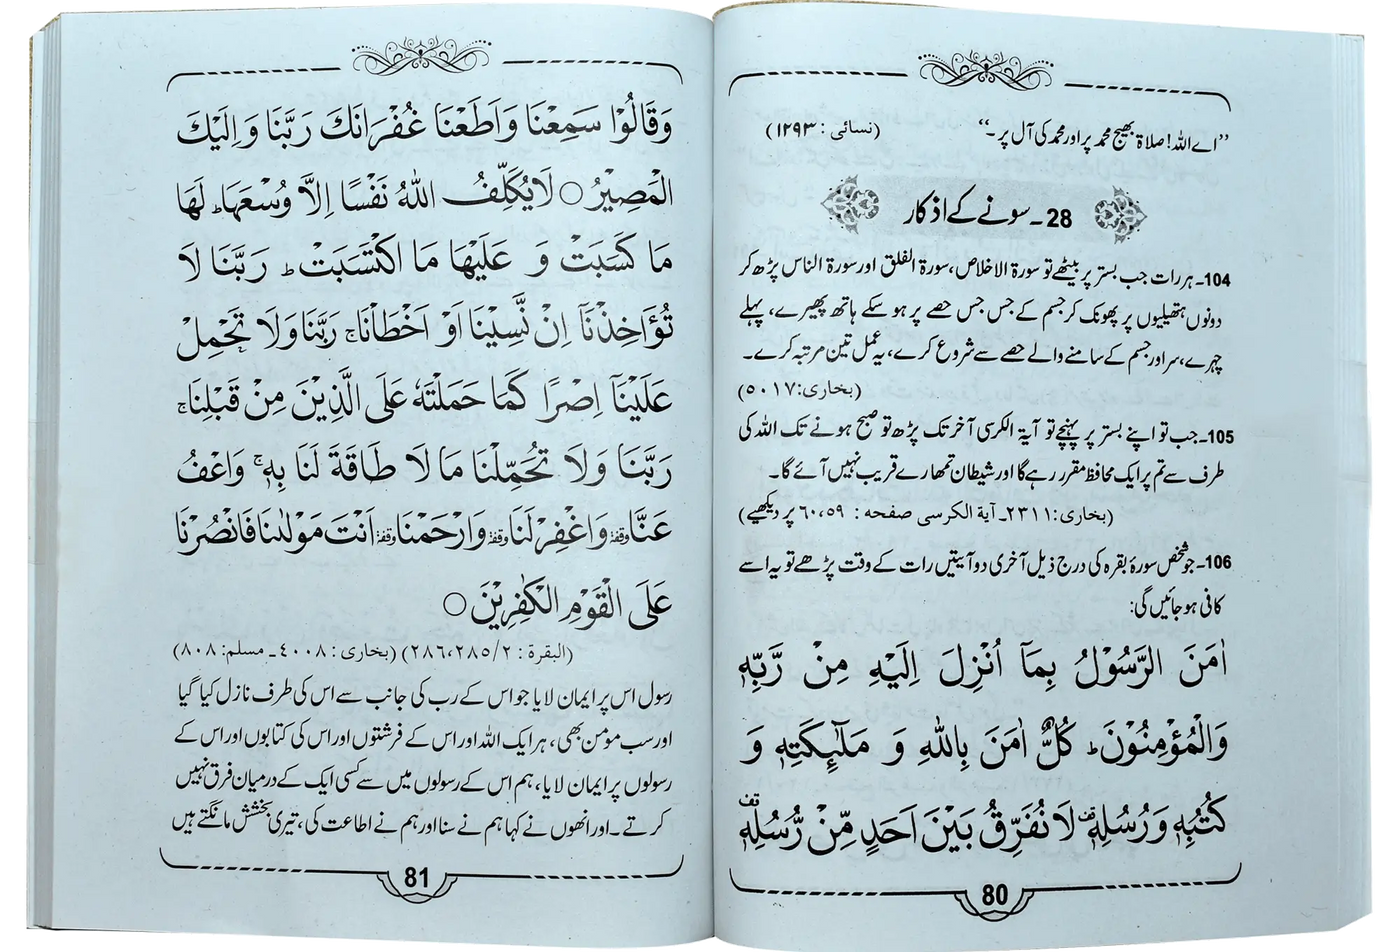 ”اے اللہ! صلاۃ بھیج محمد پر اور محمد کی آل پر۔“ (نسائی : ۱۲۹۳)
28۔ سونے کے اذکار
104۔ ہر رات جب بستر پر بیٹھے تو سورۃ الاخلاص، سورۃ الفلق اور سورۃ الناس پڑھ کر
دونوں ہتھیلیوں پر پھونک کر جسم کے جس جس حصے پر ہو سکے ہاتھ پھیرے، پہلے
چہرے، سر اور جسم کے سامنے والے حصے سے شروع کرے، یہ عمل تین مرتبہ کرے۔
(بخاری: ۵۰۱۷)
105۔ جب تو اپنے بستر پر پہنچے تو آیۃ الکرسی آخر تک پڑھ تو صبح ہونے تک اللہ کی
طرف سے تم پر ایک محافظ مقرر رہے گا اور شیطان تمھارے قریب نہیں آئے گا۔
(بخاری: ۲۳۱۱۔ آیۃ الکرسی صفحہ : ۶۰،۵۹ پر دیکھیے)
106۔ جو شخص سورۂ بقرہ کی درج ذیل آخری دو آیتیں رات کے وقت پڑھے تو یہ اسے
کافی ہو جائیں گی:
اٰمَنَ الرَّسُوْلُ بِمَآ اُنْزِلَ اِلَيْهِ مِنْ رَّبِّهٖ
وَالْمُؤْمِنُوْنَ ؕ كُلٌّ اٰمَنَ بِاللّٰهِ وَ مَلٰٓئِكَتِهٖ وَ
كُتُبِهٖ وَرُسُلِهٖ ۫ لَا نُفَرِّقُ بَيْنَ اَحَدٍ مِّنْ رُّسُلِهٖ ۫
80
وَقَالُوْا سَمِعْنَا وَاَطَعْنَا غُفْرَانَكَ رَبَّنَا وَاِلَيْكَ
الْمَصِيْرُ ○ لَا يُكَلِّفُ اللّٰهُ نَفْسًا اِلَّا وُسْعَهَا ؕ لَهَا
مَا كَسَبَتْ وَ عَلَيْهَا مَا اكْتَسَبَتْ ؕ رَبَّنَا لَا
تُؤَاخِذْنَآ اِنْ نَّسِيْنَا اَوْ اَخْطَاْنَا ۚ رَبَّنَا وَلَا تَحْمِلْ
عَلَيْنَآ اِصْرًا كَمَا حَمَلْتَهٗ عَلَى الَّذِيْنَ مِنْ قَبْلِنَا ۚ
رَبَّنَا وَلَا تُحَمِّلْنَا مَا لَا طَاقَةَ لَنَا بِهٖ ۚ وَاعْفُ
عَنَّا وقفۃ وَاغْفِرْ لَنَا وقفۃ وَارْحَمْنَا وقفۃ اَنْتَ مَوْلٰىنَا فَانْصُرْنَا
عَلَى الْقَوْمِ الْكٰفِرِيْنَ ○
(البقرة : ۲/ ۲۸۶،۲۸۵) (بخاری : ۴۰۰۸۔ مسلم: ۸۰۸)
رسول اس پر ایمان لایا جو اس کے رب کی جانب سے اس کی طرف نازل کیا گیا
اور سب مومن بھی، ہر ایک اللہ اور اس کے فرشتوں اور اس کی کتابوں اور اس کے
رسولوں پر ایمان لایا، ہم اس کے رسولوں میں سے کسی ایک کے درمیان فرق نہیں
کرتے۔ اور انھوں نے کہا ہم نے سنا اور ہم نے اطاعت کی، تیری بخشش مانگتے ہیں
81